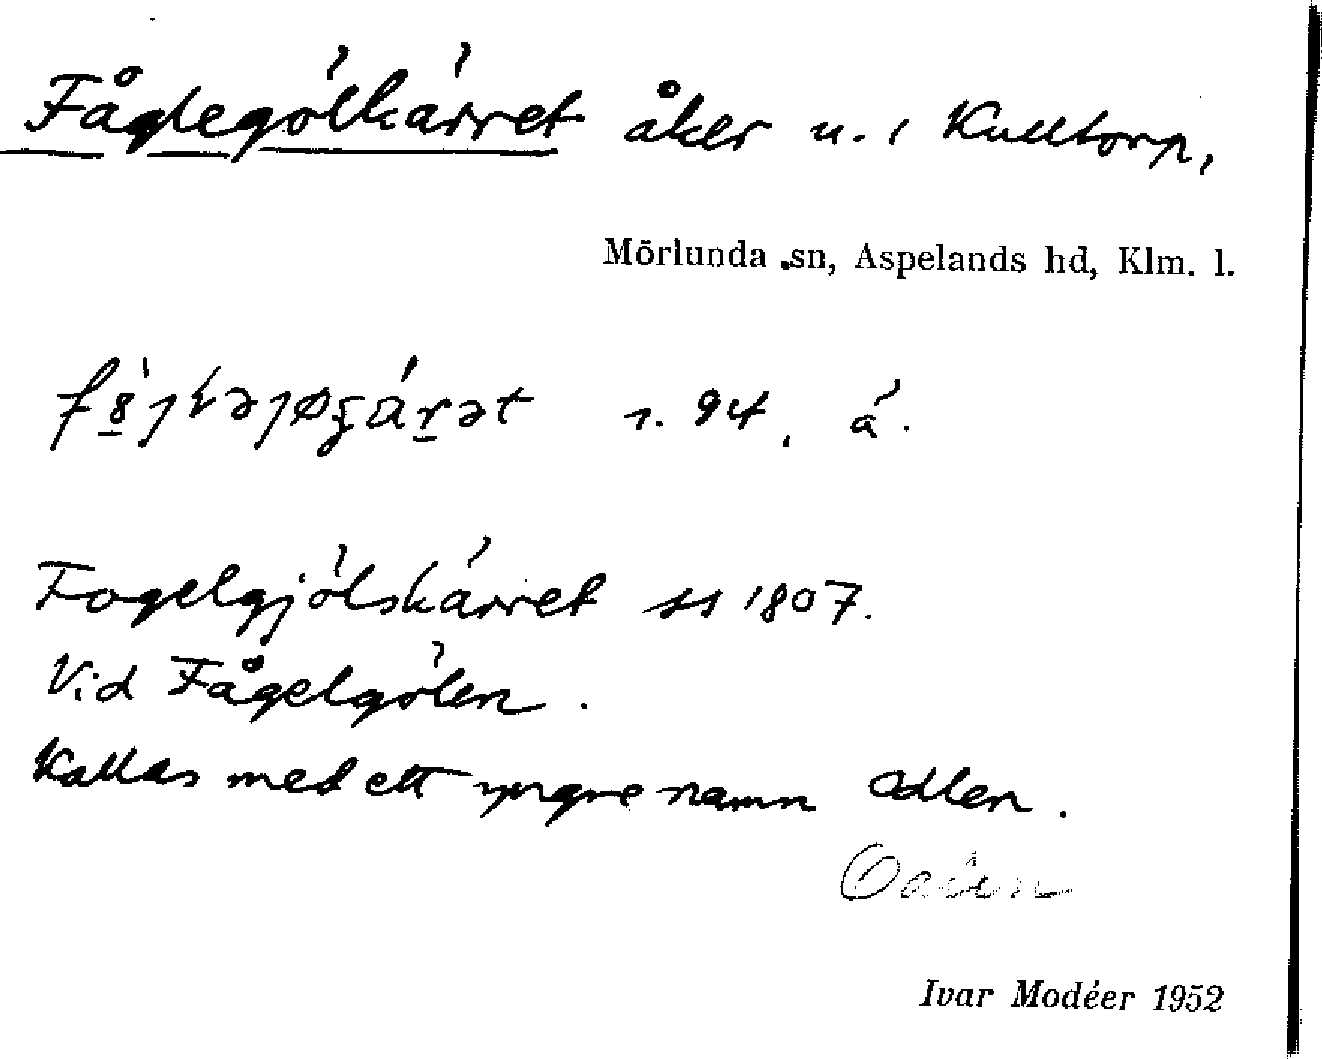 Fåglegölkärret åker n. i Kulltorp,
Mörlunda sn, Aspelands hd, Klm. l.
r. 94, å.
Fogelgjölskärret ss 1807.
Vid Fågelgölen.
Kallas med ett yngre namn Odlen.
Ivar Modéer 1952